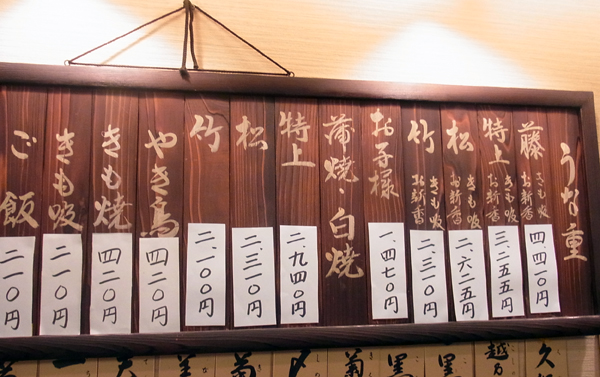 うな重
藤 きも吸 お新香 四、四一〇円
特上 きも吸 お新香 三、二五五円
松 きも吸 お新香 二、六二五円
竹 きも吸 お新香 二、三一〇円
お子様 一、四七〇円
蒲焼・白焼
特上 二、九四〇円
松 二、三一〇円
竹 二、一〇〇円
やき鳥 四二〇円
きも焼 四二〇円
きも吸 二一〇円
ご飯 二一〇円
久
越乃
黒
黒
菊
〆
菊